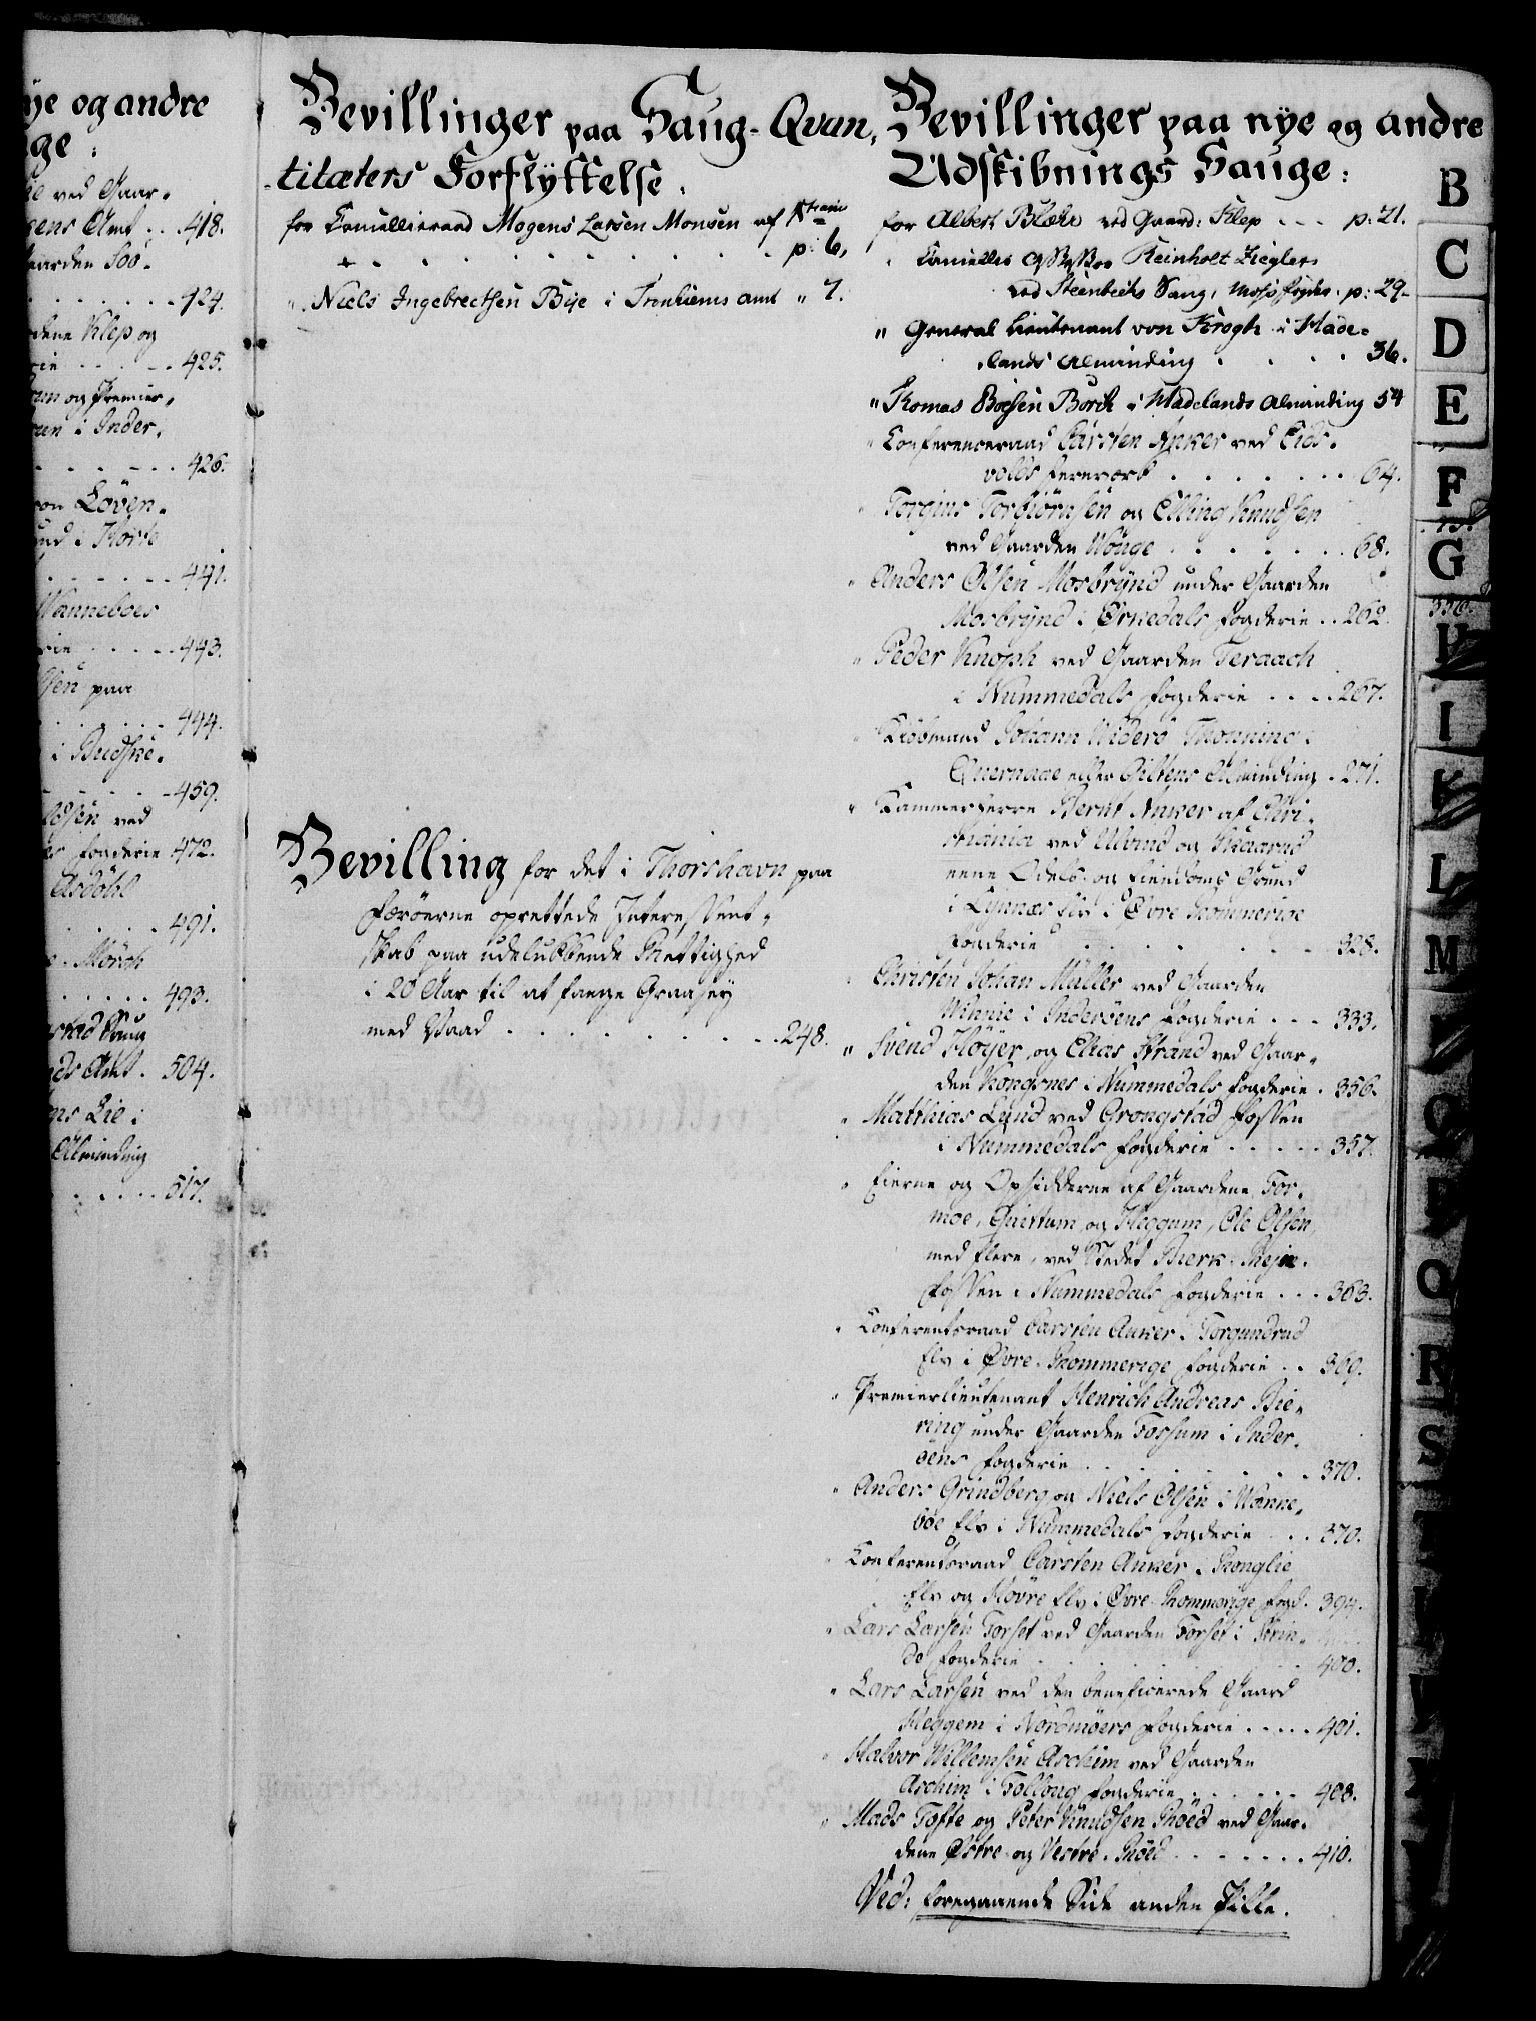 ye og andre
ge:
ved Gaar-
gens Amt . . 418.
aarden Soo-
. . . . . . . 424.
dene Klep og
rie . . . . 425.
og Premier-
i Inder-
. . . . . . 426.
von Löven-
. . . . . . 441.
Wanneboes
rie . . . . . 443.
sen paa
. . . . . . 444.
i Budske-
. . . . . 459.
sen ved
fogderie 472.
Asdöhl
. . . . . 491.
Mörch
. . . . . 493.
stad Saug
ds Amt . 504.
Lie i
Alminding
. . . . . 517.
Bevillinger paa Saug-Qvan-
titæters Forflyttelse.
for Cancellieraad Mogens Larsen Monsen af
. . . . . . . . . . p: 6,
" Niels Ingebrechtsen Bye i Tronhiems amt " 7.
Bevilling for det i Thorshavn paa
Færöerne oprettede Interessent-
skab paa udelukkende Rettighed
i 20 Aar til at fange Graasey
med Vaad . . . . . . . . . 248.
Bevillinger paa nye og andre
Udskibnings Sauge:
for Albert Blehr ved Gaard: Klep . . . p: 21.
" Cancellie Assessor Reinholt Ziegler
ved Steenbechs Saug, Moss fogder: p: 29-
" General Lieutenant von Krogh i Hade-
lands Alminding . . . . . 36.
" Thomas Boesen Borch i Hadelands Alminding 54
" Conferenceraad Carsten Anker ved Eids-
volds Jernverk . . . . . . . 64.
" Torgius Torbiörnsen og Elling Knudsen
ved Gaarden Wouge . . . . . . . 68.
" Anders Olsen Mosbrynd under Gaarden
Mosbrynd i Ørkedals fogderie . . 262.
" Peder Knoph ved Gaarden Teraach
i Nummedals fogderie . . . . 267.
" Kiöbmand Johann Widerö Thonning i
Quernaae eller Giltens Alminding . 271.
" Kammerherre Bernt Anker af Chri-
stiania ved Ulvind og Skaarud
eene Odels- og Eiendoms Grund
i Lynnæs Elv i Øvre Rommerige
fogderie . . . . . . . . 328.
" Christen Johan Müller ved Gaarden
Winnie i Inderöens fogderie . . . 333.
" Svend Höyer og Elias Strand ved Gaar-
den Kongsnes i Nummedals fogderie . 356.
" Matthias Lund ved Grongstad fossen
i Nummedals fogderie . . . . . 357.
" Eierne og Opsidderne af Gaardene For-
moe, Quittum og Heggum, Ole Olsen,
med flere, ved Stedet Bierk-
fossen i Nummedals fogderie . . . 363.
" Conferentsraad Carsten Anker i Torgundrud
Elv i Øvre-Rommerige fogderie . . 369.
" Premierlieutenant Henrich Andreas Bie-
ring under Gaarden Forsum i Inder-
öens fogderie . . . . . . . . 370.
" Anders Grindberg og Niels Olsen i Wanne-
böe Elv i Nummedals fogderie . . . 370.
" Conferentsraad Carsten Anker i Ronglie
Elv og Hövre Elv i Øvre-Rommerige fogd. 394.
" Lars Larsen Forset ved Gaarden Forset i Strin-
de fogderie . . . . . . . . . 400.
" Lars Larsen ved den beneficerede Gaard
Heggem i Nordmöers fogderie . . . . . 401.
" Halvor Willemsen Aschim ved Gaarden
Aschim i Follong fogderie . . . . . . 408.
" Mads Tofte og Peter Knudsen Röed ved Gaar-
dene Østre- og Vestre-Röed . . . . . . . 410.
Vid: foregaaende Side anden Pille.
B
C
D
E
F
G
H
I
K
L
M
O
P
Q
R
S